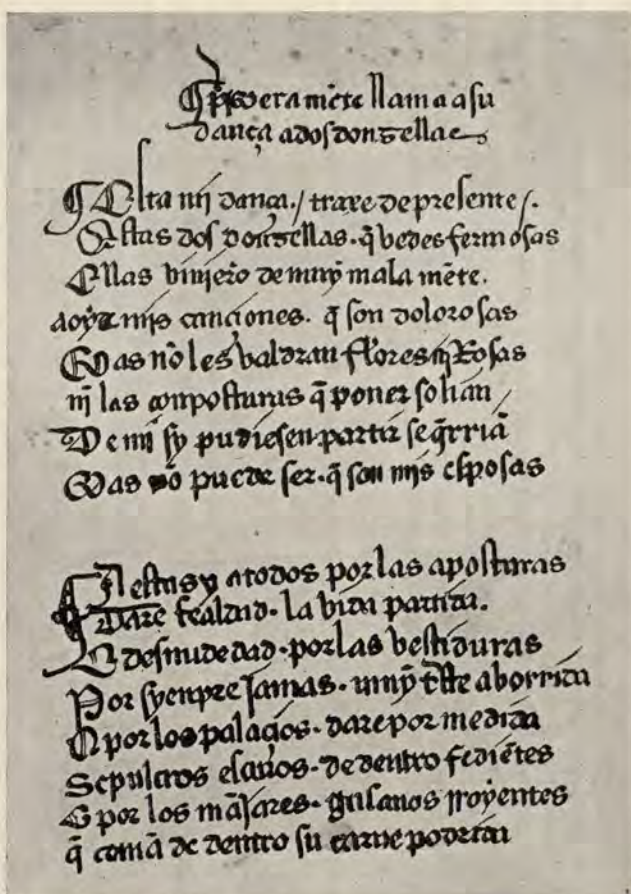 ¶ Primeramẽte llama a su
dança a dos donzellas
¶ Esta mj dança./ traxe de presente/.
Estas dos donzellas. q̃ vedes fermosas
Ellas vinjerõ de muy mala mẽte.
a oyr mjs canciones. q̃ son dolorosas
Mas nõ les valdran flores nj Rosas
nj las conposturas q̃ poner solian
De mj sy pudiesen partir se q̃rriã
Mas nõ puede ser. q̃ son mjs esposas
¶ A estas y a todos por las aposturas
Dare fealdad. la vida partida.
E desnudedad. por las vestiduras
Por syenpre Jamas. muy triste aborrida
E por los palaçios. dare por medida
Sepulcros escuros. de dentro fediẽtes
E por los mãjares. gusanos rroyentes
q̃ comã de dentro su carne podrida